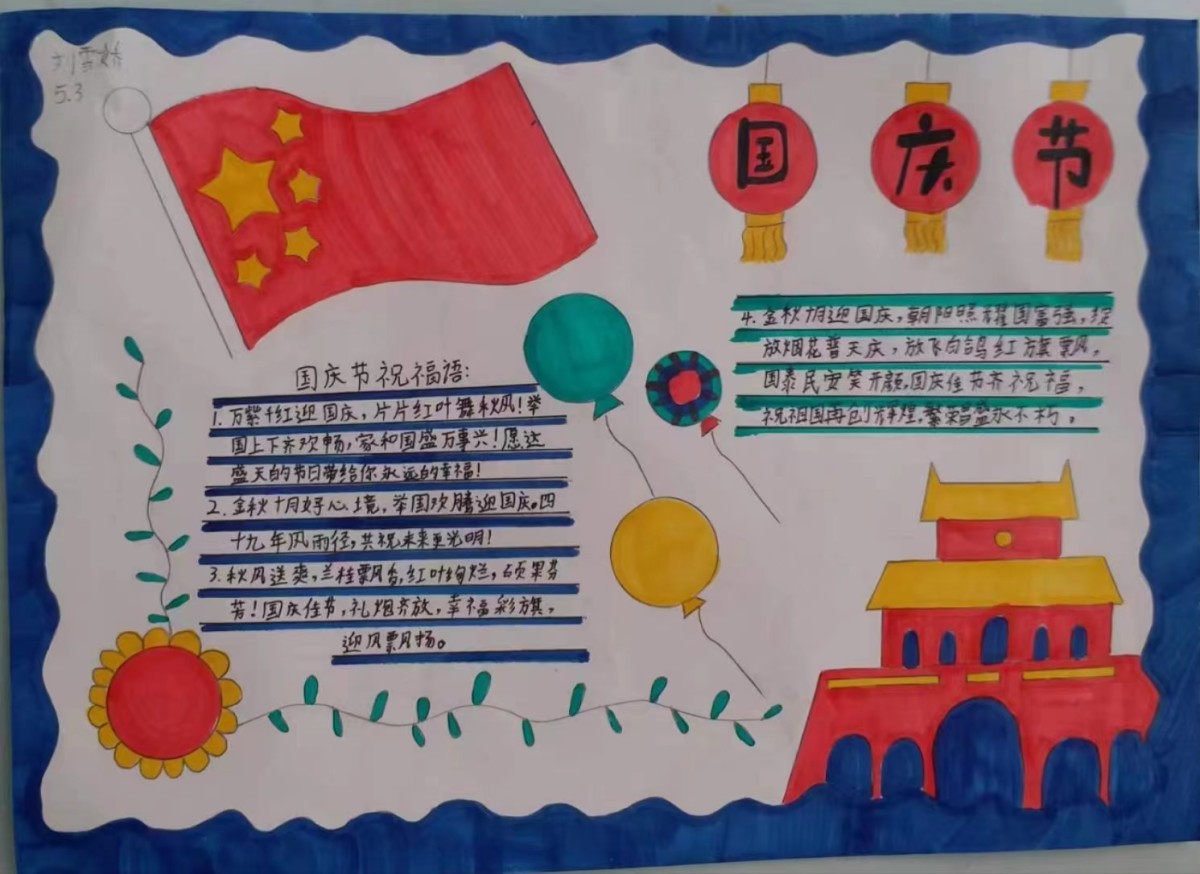 刘雪娇
5.3
国庆节
国庆节祝福语:
1.万紫千红迎国庆,片片红叶舞秋风!举
国上下齐欢畅,家和国盛万事兴!愿这
盛大的节日带给你永远的幸福!
2.金秋十月好心境,举国欢腾迎国庆。四
十九年风雨径,共祝未来更光明!
3.秋风送爽,兰桂飘香,红叶绚烂,硕果芬
芳!国庆佳节,礼烟齐放,幸福彩旗,
迎风飘扬。
4.金秋十月迎国庆,朝阳照耀国富强,绽
放烟花普天庆,放飞白鸽红旗飘,
国泰民安笑开颜,国庆佳节齐祝福,
祝祖国再创辉煌,繁荣昌盛永不朽。